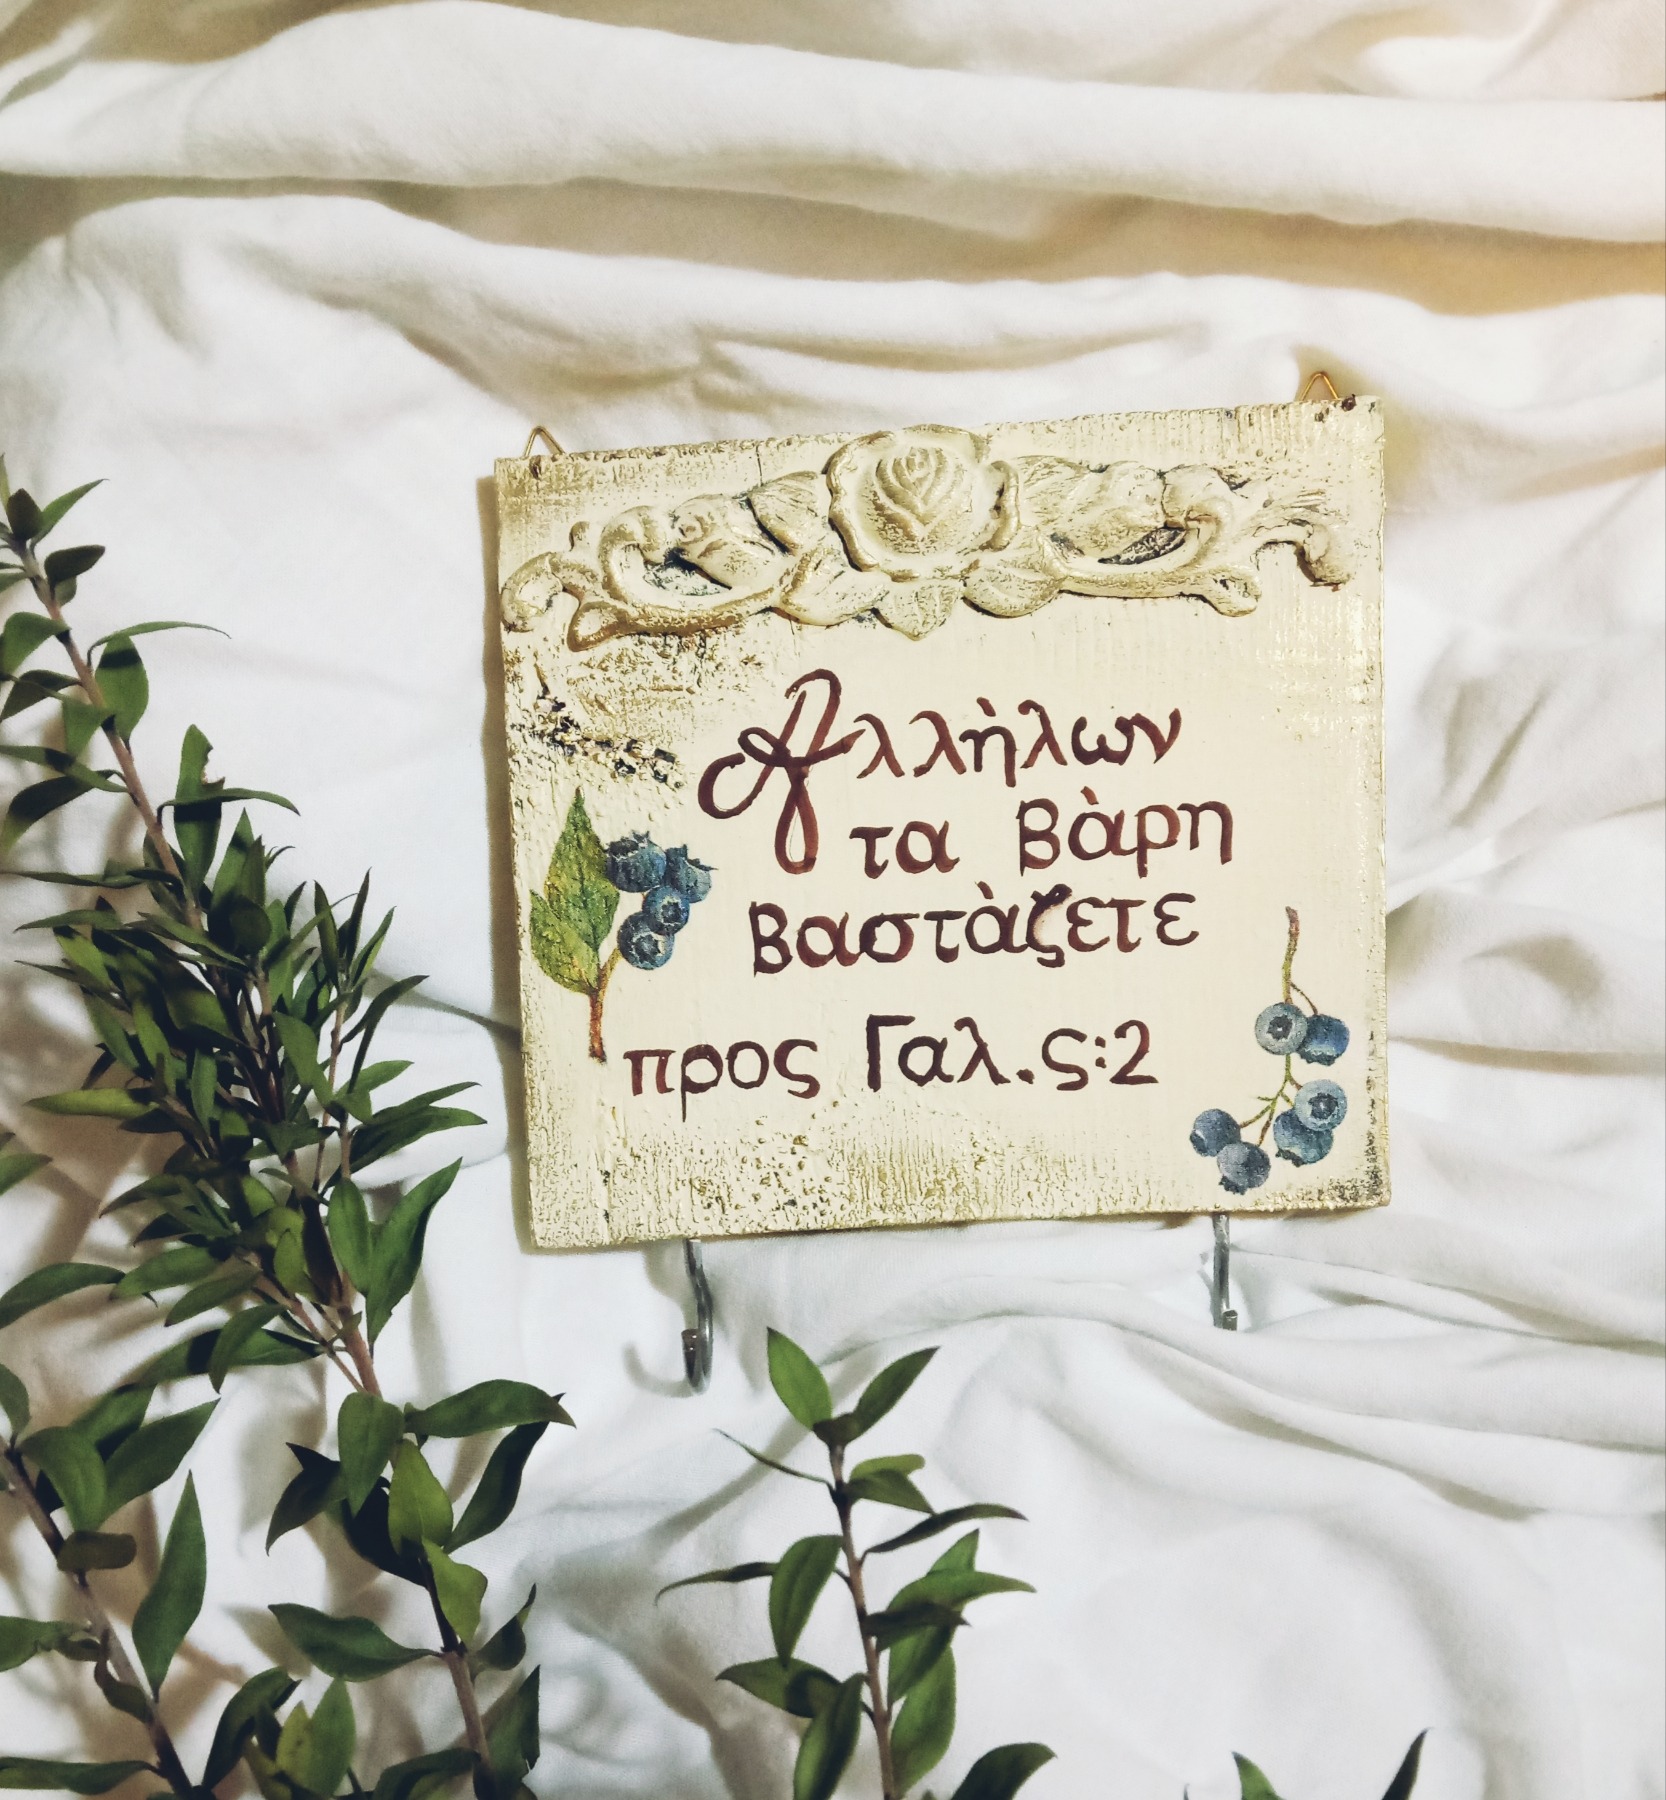 Αλλὴλων
τα Βὰρη
Βαστὰζετε
προς Γαλ.ς:2